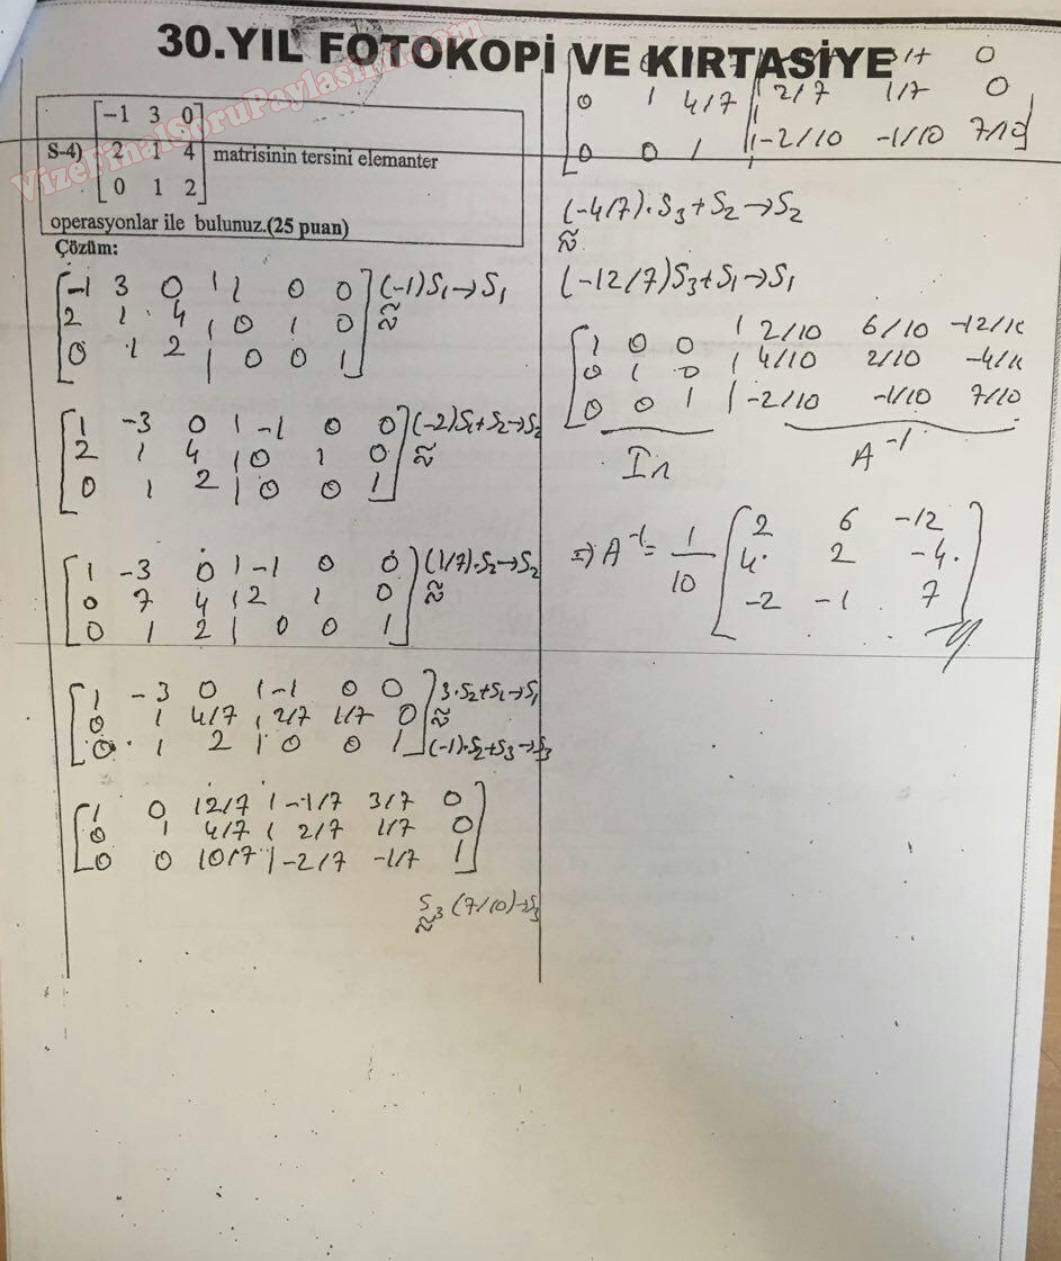 30.YIL FOTOKOPİ VE KIRTASİYE
VizeFinalSoruPaylasimi.com
S-4)
-1 3 0
2 1 4 matrisinin tersini elemanter
0 1 2
operasyonlar ile bulunuz.(25 puan)
Çözüm:
-1 3 0 | 1 0 0 (-1)S1→S1
2 1 4 | 0 1 0 ≈
0 1 2 | 0 0 1
1 -3 0 | -1 0 0 (-2)S1+S2→S2
2 1 4 | 0 1 0 ≈
0 1 2 | 0 0 1
1 -3 0 | -1 0 0 (1/7).S2→S2
0 7 4 | 2 1 0 ≈
0 1 2 | 0 0 1
1 -3 0 | -1 0 0 3.S2+S1→S1
0 1 4/7 | 2/7 1/7 0 ≈
0 1 2 | 0 0 1 (-1).S2+S3→S3
1 0 12/7 | -1/7 3/7 0
0 1 4/7 | 2/7 1/7 0
0 0 10/7 | -2/7 -1/7 1
S3 (7/10)→S3
≈
0
0 1 4/7 | 2/7 1/7 0
0 0 1 | -2/10 -1/10 7/10
(-4/7).S3+S2→S2
≈
(-12/7)S3+S1→S1
1 0 0 | 2/10 6/10 -12/10
0 1 0 | 4/10 2/10 -4/10
0 0 1 | -2/10 -1/10 7/10
In A⁻¹
⇒ A⁻¹= 1/10
2 6 -12
4 2 -4
-2 -1 7